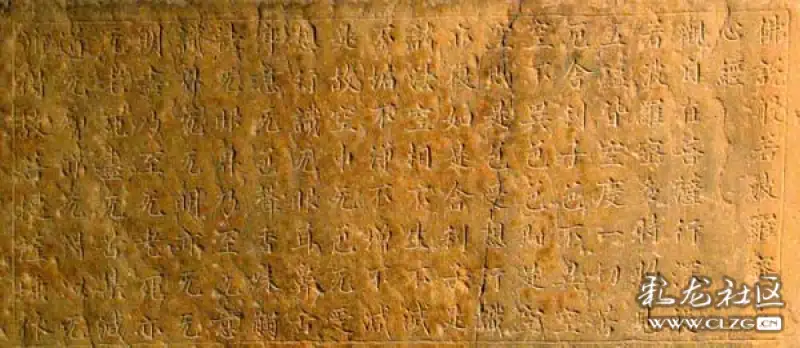 佛說般若波羅
心經
觀自在菩薩行深
若波羅蜜多時照
五蘊皆空度一切苦
厄舍利子色不異空
空不異色色即是空
空即是色受想行識
亦復如是舍利子是
諸法空相不生不滅
不垢不淨不增不減
是故空中无色无受
想行識无眼耳鼻舌
身意无色聲香味觸
法无眼界乃至无意
識界无无明亦无无
明盡乃至无老死亦
无老死盡无苦集滅
道无智亦无得以无
所得故菩提薩埵依
彩龙社区
WWW.CLZG.CN